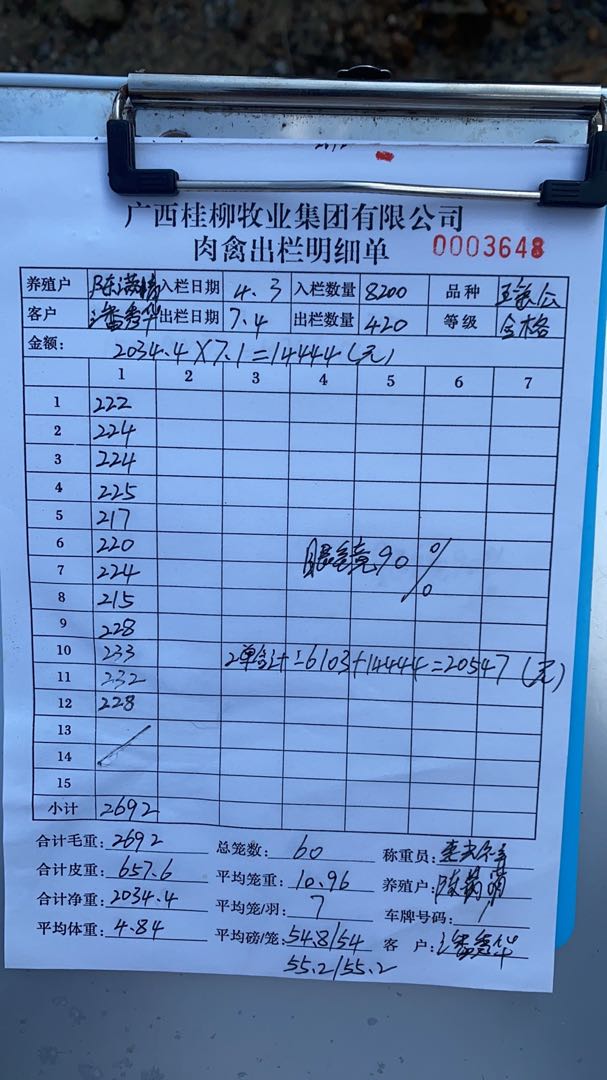 广西桂柳牧业集团有限公司
肉禽出栏明细单 0003648
养殖户 入栏日期 4.3 入栏数量 8200 品种
客户 潘秀华 出栏日期 7.4 出栏数量 420 等级 合格
金额: 2034.4×7.1=14444(元)
1 2 3 4 5 6 7
1 222
2 224
3 224
4 225
5 217
6 220
7 224
眼毛竟90%
8 215
9 228
10 233
2单合计=6103+14444=20547(元)
11 232
12 228
13
14
15
小计 2692
合计毛重: 2692 总笼数: 60 称重员:
合计皮重: 657.6 平均笼重: 10.96 养殖户:
合计净重: 2034.4 平均笼/羽: 7 车牌号码: /
平均体重: 4.84 平均磅/笼: 54.8/54 客户: 潘秀华
55.2/55.2